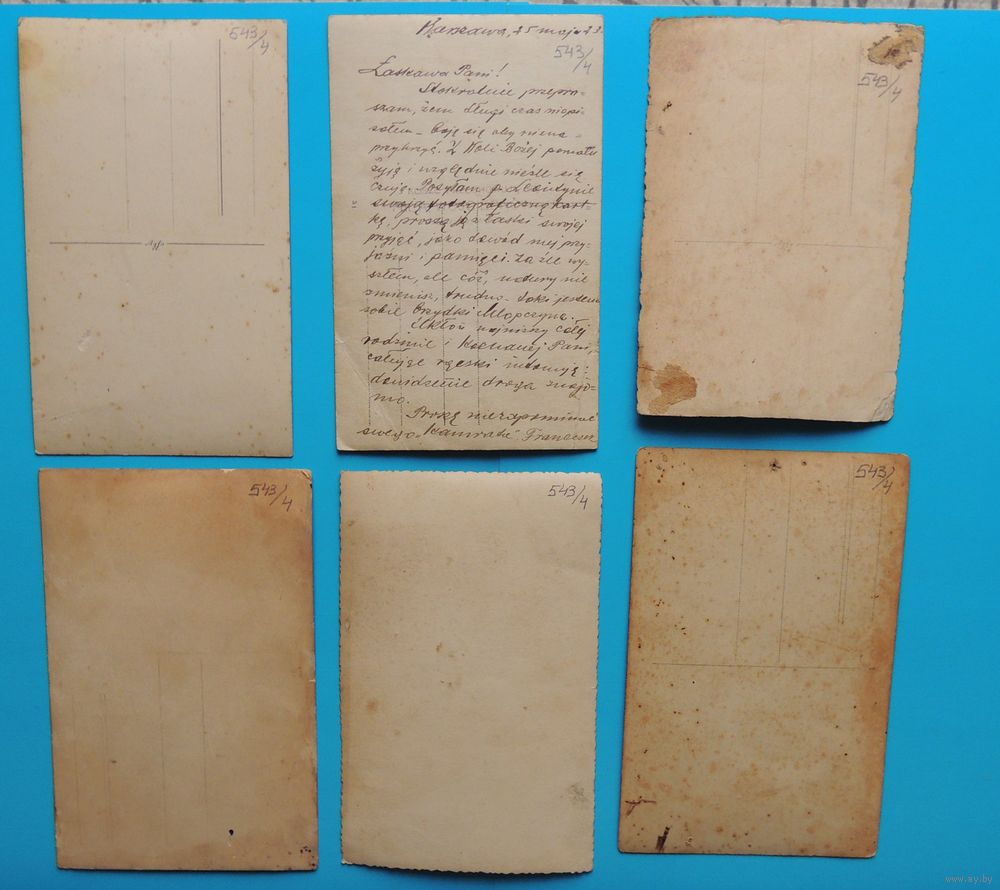 543/4
Warszawa, 25 maja 23.
543/4
Łaskawa Pani!
Stokrotnie przepra-
szam, żem długi czas niepi-
sałem – boję się aby niena-
przykrzyć. Z Woli Bożej pomału
żyję i względnie nieźle się
czuję. Posyłam p. Leontynie
swoją fotograficzną kart-
kę, proszę ją z łaski swojej
przyjąć, jako dowód mej przy-
jaźni i pamięci. Za źle wy-
szłem, ale cóż, natury nie
zmienisz, trudno – taki jestem
sobie brzydki chłopczyna. –
Ukłon najniższy całej
rodzinie i Kochanej Pani,
całuję rączki
dowidzenie droga znajo-
mo.
Proszę niezapominać
swego „Kamrata" Franciszek
543/4
543/4
543/4
543/4
www.ay.by